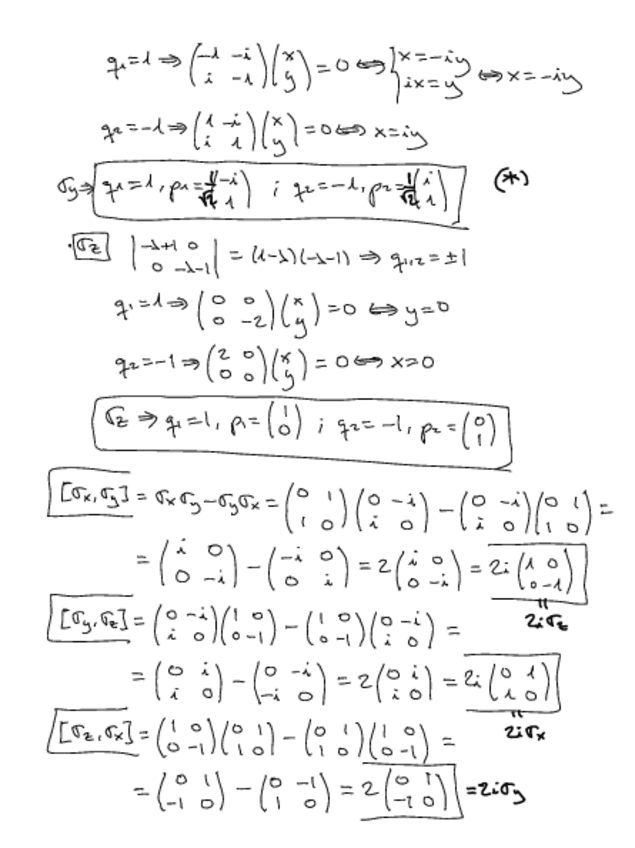 q₁=1 ⇒ (-1 -i; i -1)(x; y) = 0 ⇔ {x=-iy; ix=y ⇔ x=-iy
q₂=-1 ⇒ (1 -i; i 1)(x; y) = 0 ⇔ x=iy
σy ⇒ q₁=1, p₁=1/√2(-i; 1) ; q₂=-1, p₂=1/√2(i; 1) (*)
· σz |-λ+1 0; 0 -λ-1| = (1-λ)(-λ-1) ⇒ q₁,₂ = ±1
q₁=1 ⇒ (0 0; 0 -2)(x; y) = 0 ⇔ y=0
q₂=-1 ⇒ (2 0; 0 0)(x; y) = 0 ⇔ x=0
σz ⇒ q₁=1, p₁=(1; 0) ; q₂=-1, p₂=(0; 1)
[σx,σy] = σxσy-σyσx = (0 1; 1 0)(0 -i; i 0) - (0 -i; i 0)(0 1; 1 0) =
= (i 0; 0 -i) - (-i 0; 0 i) = 2(i 0; 0 -i) = 2i(1 0; 0 -1)
= 2iσz
[σy,σz] = (0 -i; i 0)(1 0; 0 -1) - (1 0; 0 -1)(0 -i; i 0) =
= (0 i; i 0) - (0 -i; -i 0) = 2(0 i; i 0) = 2i(0 1; 1 0)
= 2iσx
[σz,σx] = (1 0; 0 -1)(0 1; 1 0) - (0 1; 1 0)(1 0; 0 -1) =
= (0 1; -1 0) - (0 -1; 1 0) = 2(0 1; -1 0) = 2iσy